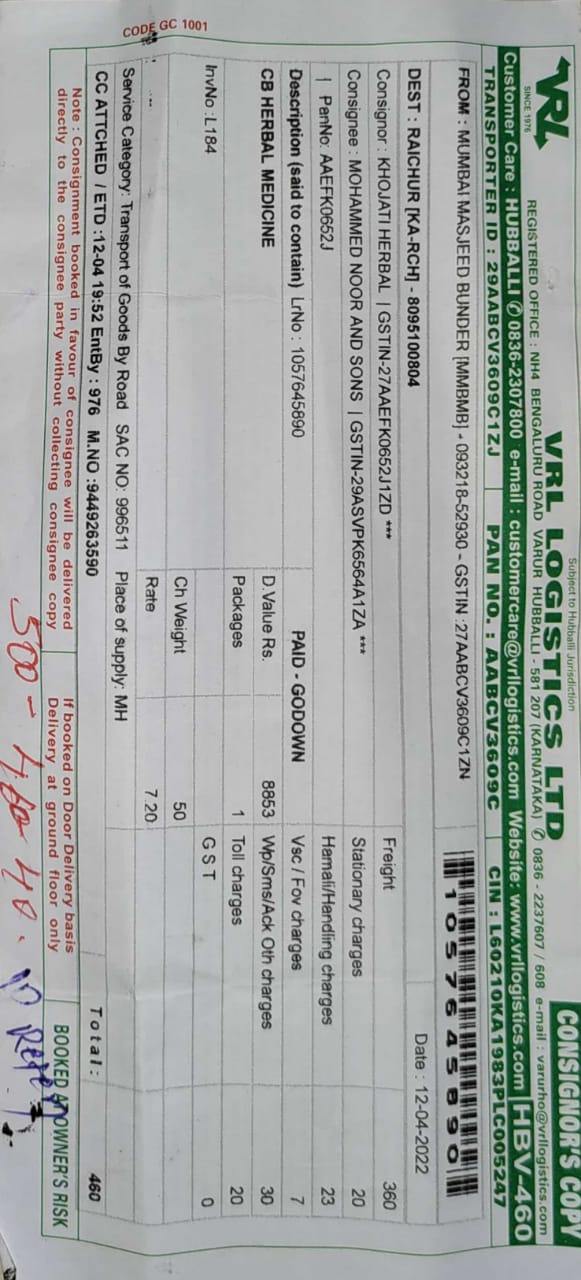 CODE GC 1001
VRL
SINCE 1976
Subject to Hubballi Jurisdiction
VRL LOGISTICS LTD
CONSIGNOR'S COPY
REGISTERED OFFICE : NH4 BENGALURU ROAD VARUR HUBBALLI - 581 207 (KARNATAKA) ✆ 0836 - 2237607 / 608 e-mail : varurho@vrllogistics.com
Customer Care : HUBBALLI ✆ 0836-2307800 e-mail : customercare@vrllogistics.com Website: www.vrllogistics.com HBV-460
TRANSPORTER ID : 29AABCV3609C1ZJ PAN NO. : AABCV3609C CIN : L60210KA1983PLC005247
FROM : MUMBAI MASJEED BUNDER [MMBMB] - 093218-52930 - GSTIN :27AABCV3609C1ZN
1057645890
DEST : RAICHUR [KA-RCH] - 8095100804 Date : 12-04-2022
Consignor : KHOJATI HERBAL | GSTIN-27AAEFK0652J1ZD *** Freight 360
Consignee : MOHAMMED NOOR AND SONS | GSTIN-29ASVPK6564A1ZA *** Stationary charges 20
| PanNo: AAEFK0652J Hamali/Handling charges 23
Description (said to contain) LrNo : 1057645890 PAID - GODOWN Vsc / Fov charges 7
CB HERBAL MEDICINE D.Value Rs. 8853 Wp/Sms/Ack Oth charges 30
Packages 1 Toll charges 20
InvNo :L184 G S T 0
Ch Weight 50
Rate 7.20
Service Category: Transport of Goods By Road SAC NO: 996511 Place of supply: MH
CC ATTCHED / ETD :12-04 19:52 EntBy : 976 M.NO :9449263590 Total : 460
Note : Consignment booked in favour of consignee will be delivered
directly to the consignee party without collecting consignee copy
If booked on Door Delivery basis
Delivery at ground floor only
BOOKED AT OWNER'S RISK
500 - 460 40.